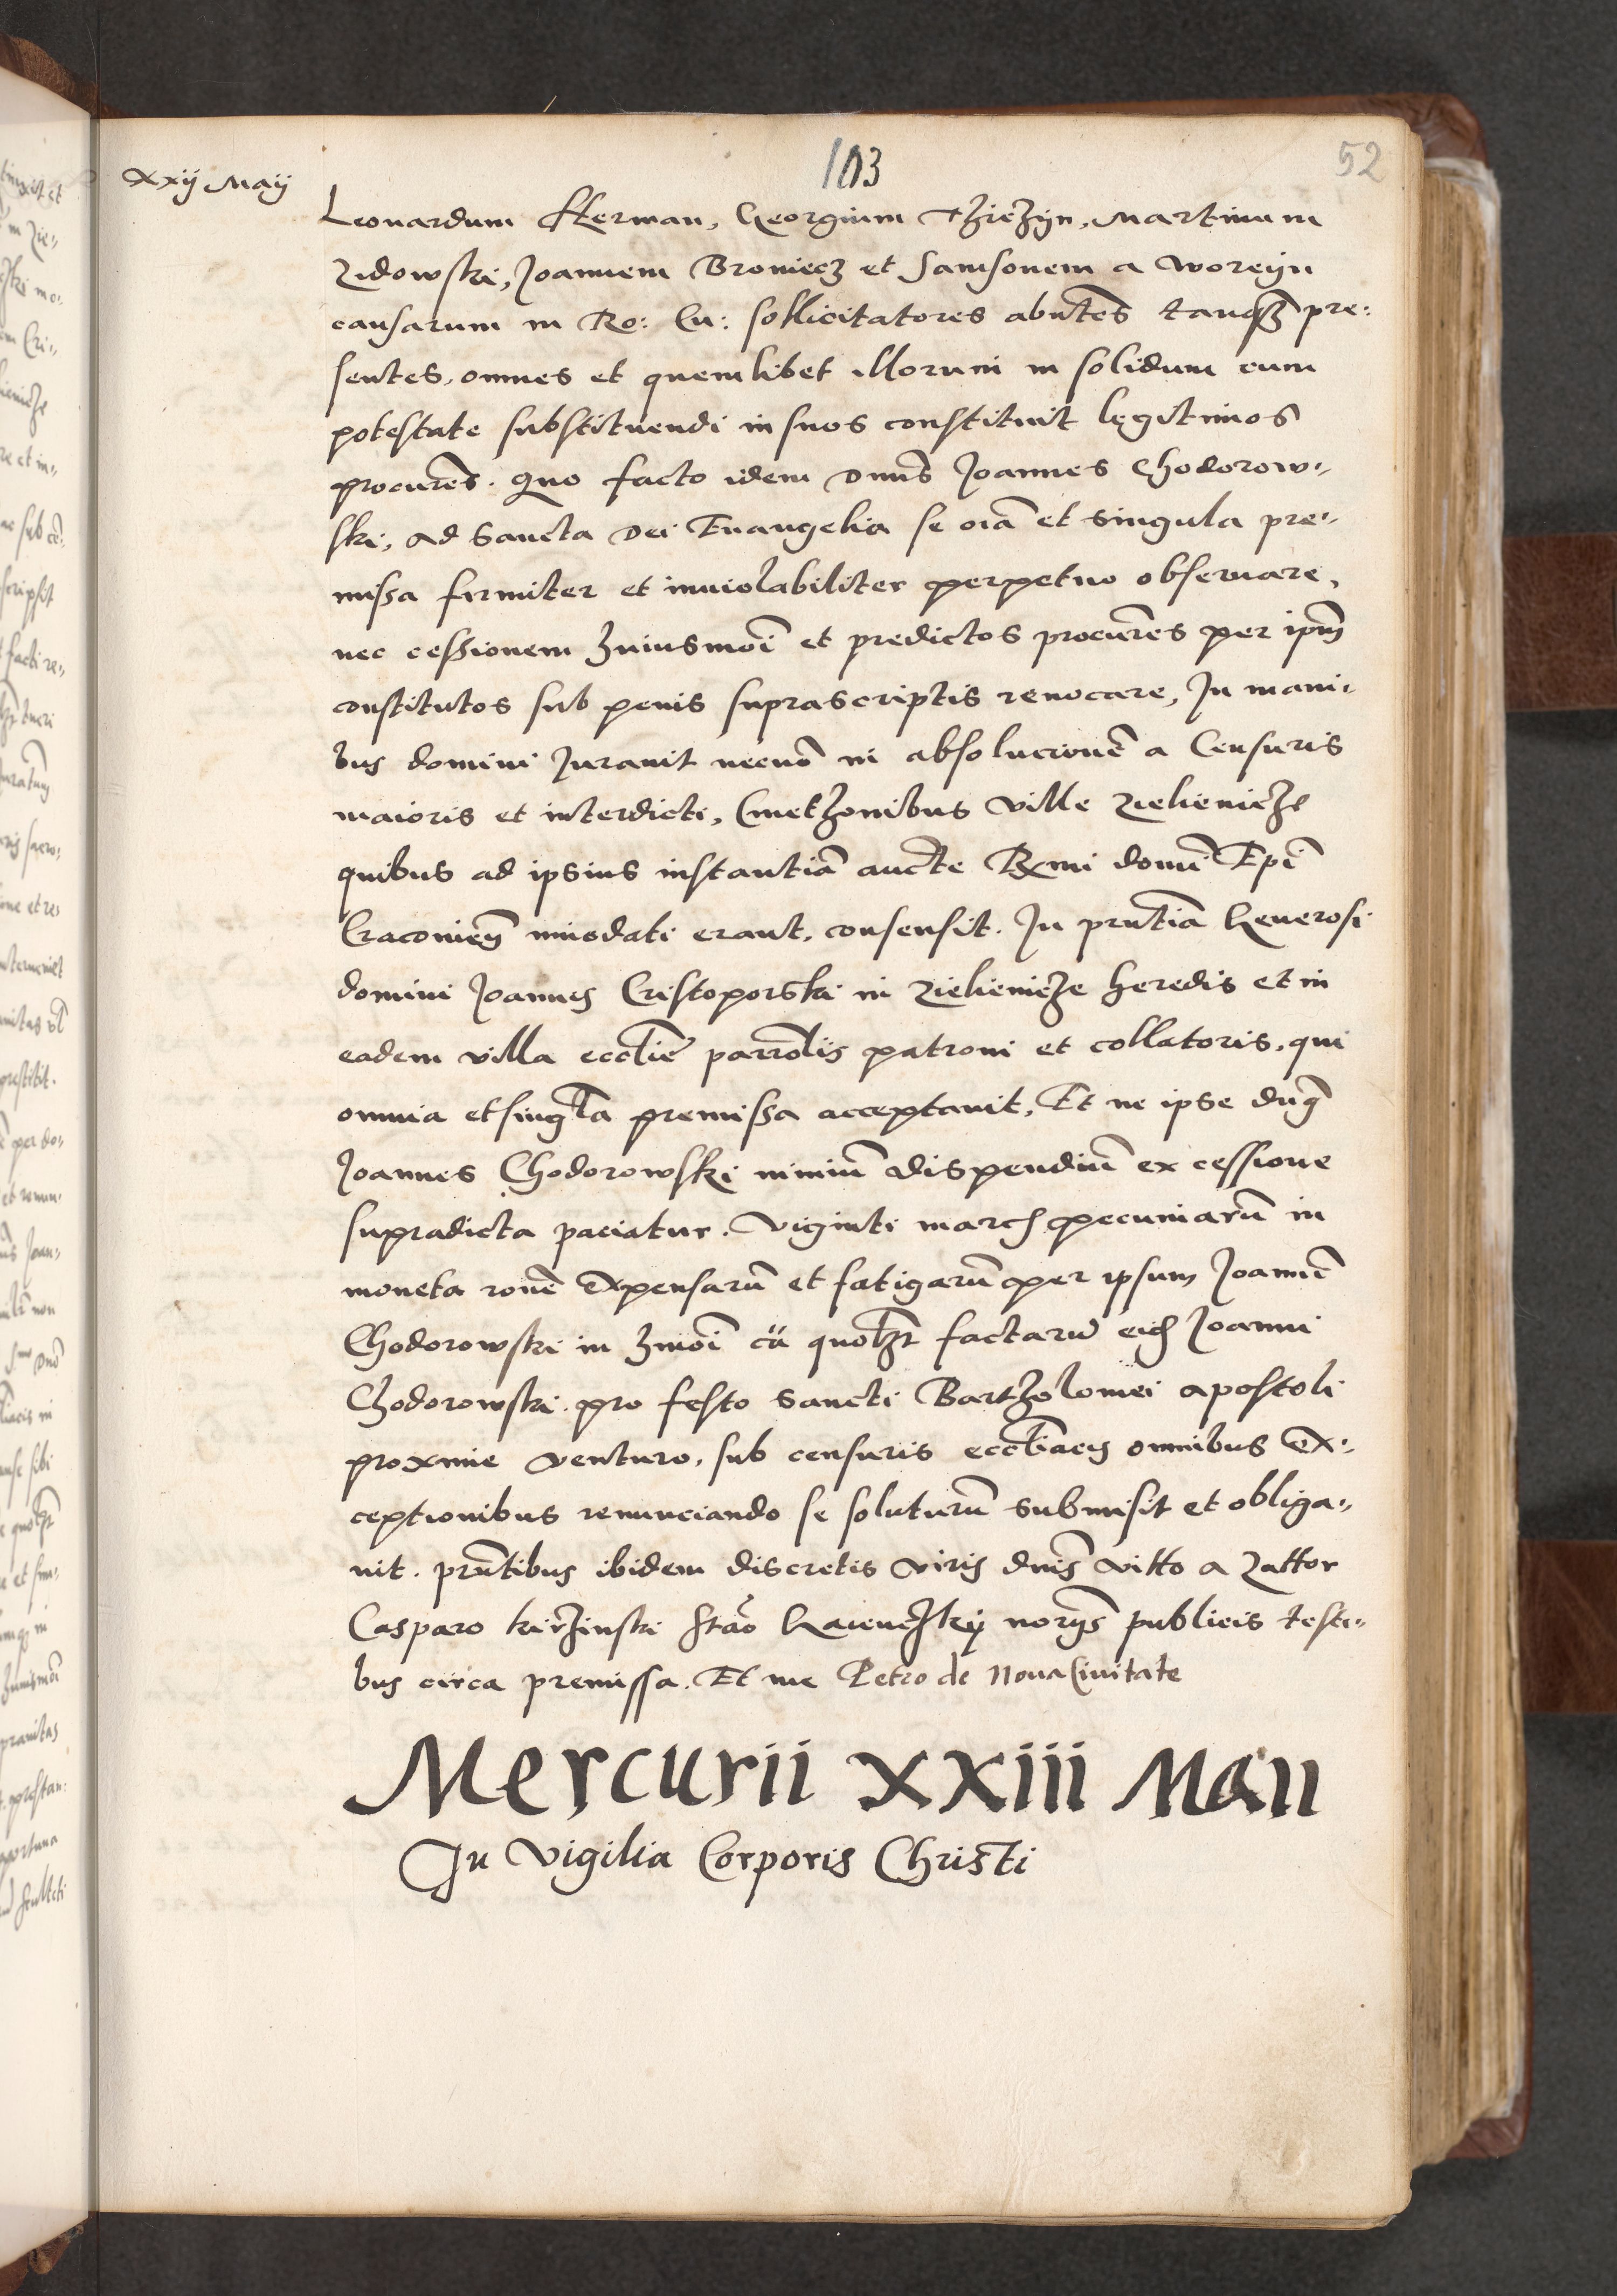 103
52
xxij Maij
Leonardum Herman, Georgium Tziezijn, Martinum
Zidowski, Joannem Broniecz et Samsonem a Woreijn
causarum in Ro: Cu: sollicitatores abntes tanq̃ pre:
sentes, omnes et quemlibet illorum in solidum cum
potestate substituendi in suos constituit legitimos
procures. Quo facto idem Dnus Joannes Chodorow-
ski, ad Sancta Dei Euangelia se oia et singula pre-
missa firmiter et inuiolabiliter perpetuo obseruare,
nec cessionem huiusmoi et predictos procures per ipm
constitutos sub penis suprascriptis reuocare, In mani-
bus domini Jurauit necno in absolucione a Censuris
maioris et interdicti, Cmethonibus ville Zielienicze
quibus ad ipsius instantia aucte Rmi domi Epi
Cracouien innodati erant, consensit. In prntia Generosi
domini Joannis Cristoporski in Zielienicze heredis et in
eadem villa ecclie parrolis patroni et collatoris, qui
omnia et singla premissa acceptauit, Et ne ipse dns
Joannes Chodorowski nimiu dispendiu ex cessione
supradicta paciatur. Viginti march pecuniaru in
moneta rone expensaru et fatigaru per ipsum Joanne
Chodorowski in hmoi ca quolzt factaru eid Joanni
Chodorowski pro festo Sancti Bartholomei apostoli
proxime venturo, sub censuris eccliacis omnibus ex-
ceptionibus renunciando se soluturu submisit et obliga-
uit. prntibus ibidem discretis viris dnis Vitto a Zattor
Casparo kirzinski Stao norijs publicis testi-
bus circa premissa. Et me Petro de Noua Ciuitate
Mercurii xxiii Maii
In Vigilia Corporis Christi